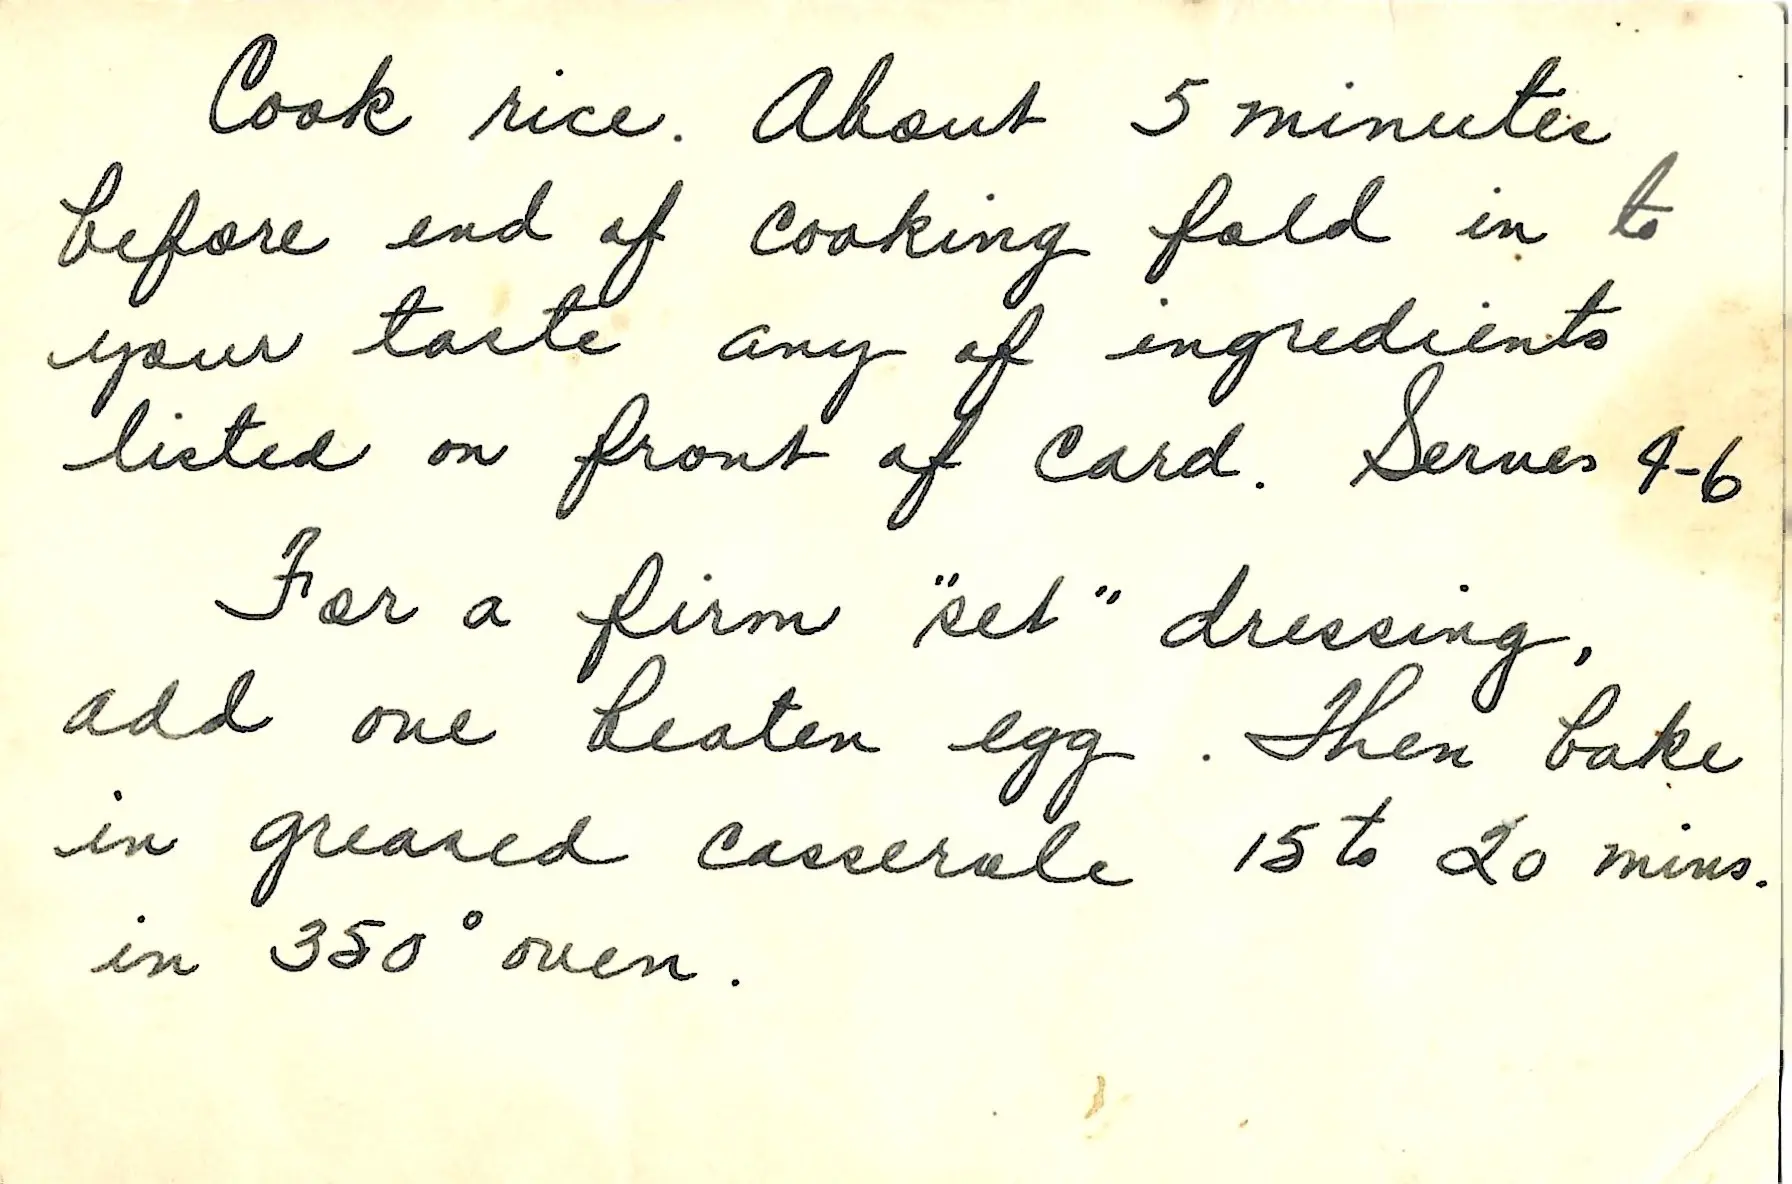 Cook rice. About 5 minutes
before end of cooking fold in to
your taste any of ingredients
listed on front of card. Serves 4-6
For a firm "set" dressing,
add one beaten egg. Then bake
in greased casserole 15 to 20 mins.
in 350° oven.